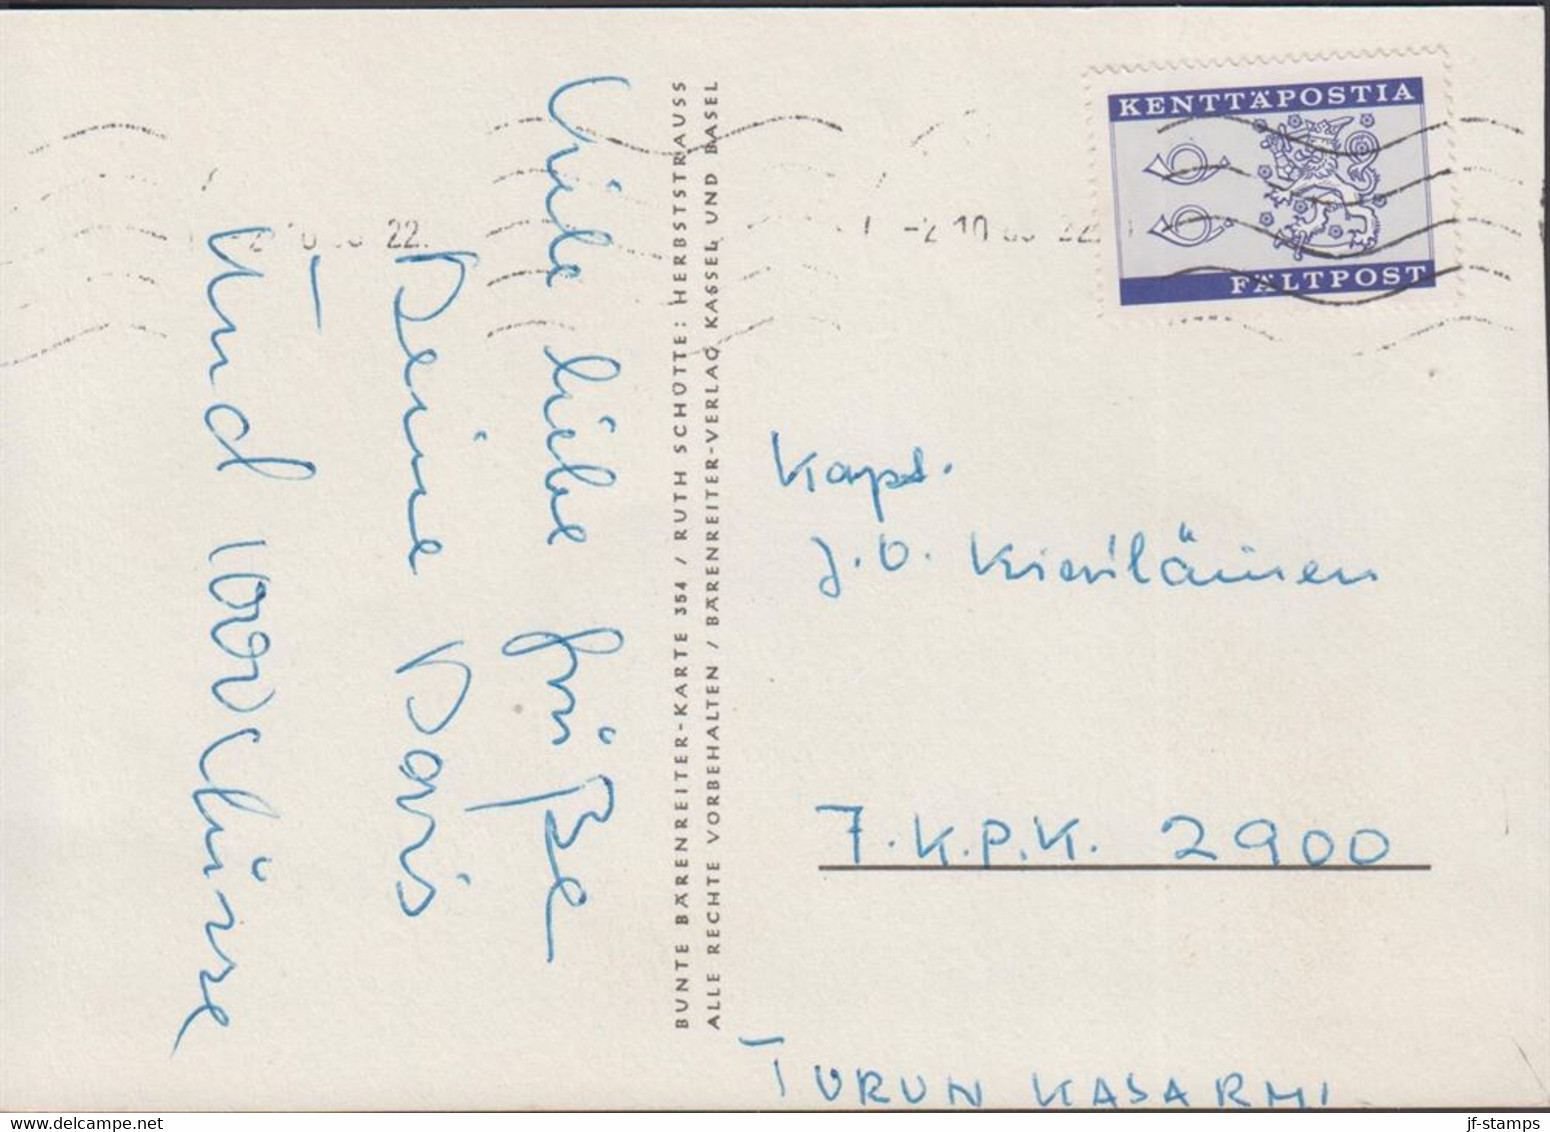 Viele liebe Grüße
Deine Doris
Und
BUNTE BÄRENREITER-KARTE 354 / RUTH SCHÜTTE: HERBSTSTRAUSS
ALLE RECHTE VORBEHALTEN / BÄRENREITER-VERLAG KASSEL UND BASEL
KENTTÄPOSTIA
FÄLTPOST
-2.10 22
22.
Kapt.
J.O. Kiviläinen
7.K.P.K. 2900
TURUN KASARMI
jf-stamps
www.delcampe.net